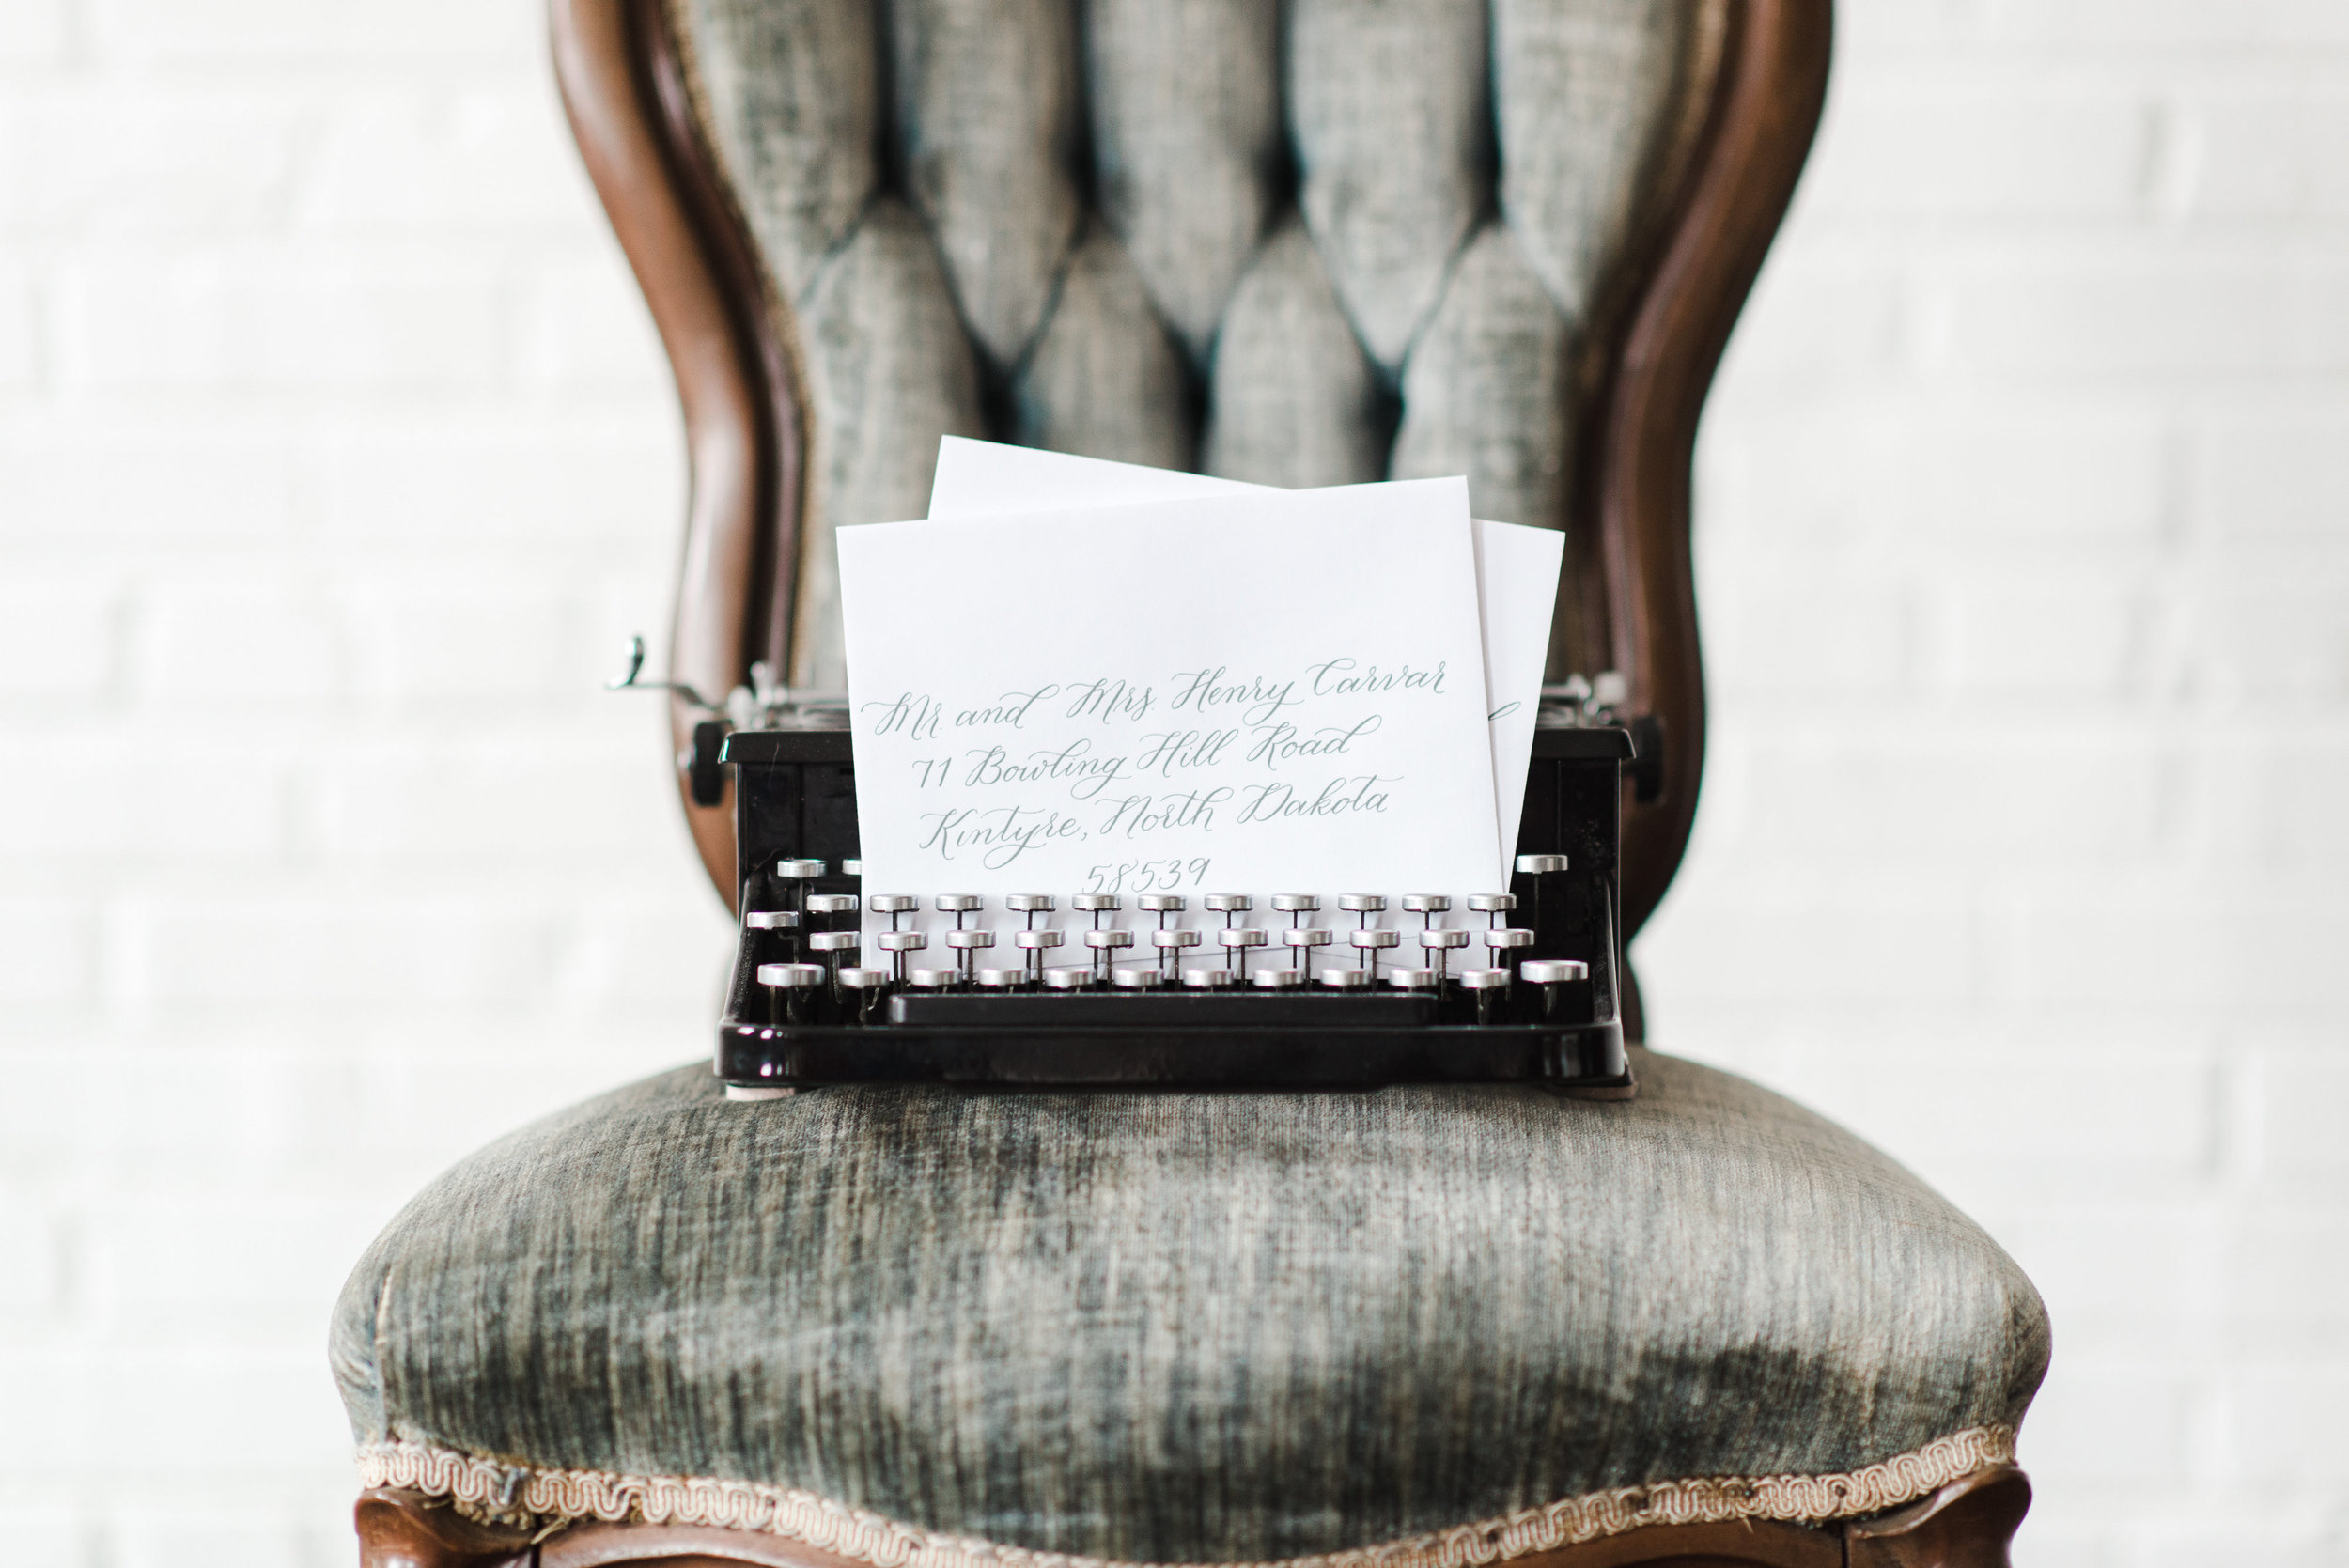 Mr. and Mrs. Henry Carvar
71 Bowling Hill Road
Kintyre, North Dakota
58539